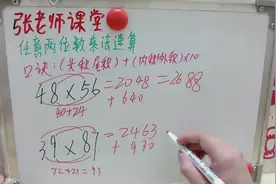 张老师课堂
任意两位数乘法速算
口诀:(头数尾数)+(内数外数)×10
48×56=2048=2688
+640
40+24
39×87=2463
+930
72+21=93